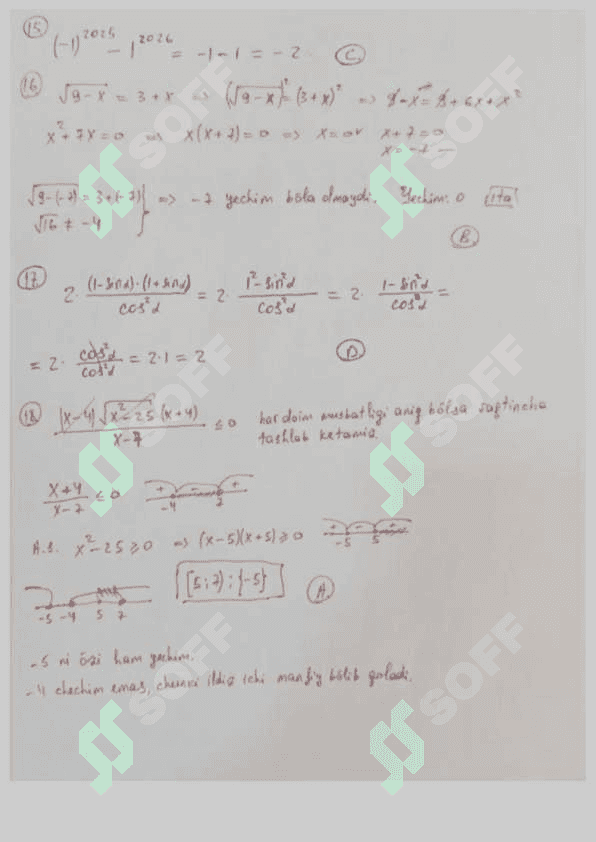 15 (-1)^2025 - 1^2026 = -1 - 1 = -2. C
16 √9-x = 3+x => (√9-x)^2 = (3+x)^2 => 9-x = 9+6x+x^2
x^2+7x=0 => x(x+7)=0 => x=0 v x+7=0
x=-7
√9-(-7) = 3+(-7)
√16 ≠ -4 } => -7 yechim bòla olmaydi. Yechim: 0 1ta
B
17 2· (1-sinα)·(1+sinα) / cos^2α = 2· 1^2-sin^2α / cos^2α = 2· 1-sin^2α / cos^2α =
= 2· cos^2α / cos^2α = 2·1 = 2 D
18 |x-4|√x^2-25 (x+4) / x-7 ≤ 0 har doim musbatligi aniq bòlsa
tashlab ketamiz.
x+4 / x-7 ≤ 0 + - + -4 7
A.S. x^2-25≥0 => (x-5)(x+5)≥0 + - + -5 5
-5 -4 5 7 [5;7) ; {-5} A
-5 ni òzi ham yechim.
-4 chechim emas, chunki ildiz ichi manfiy bòlib qoladi.
SOFF
SOFF
SOFF
SOFF
SOFF
SOFF